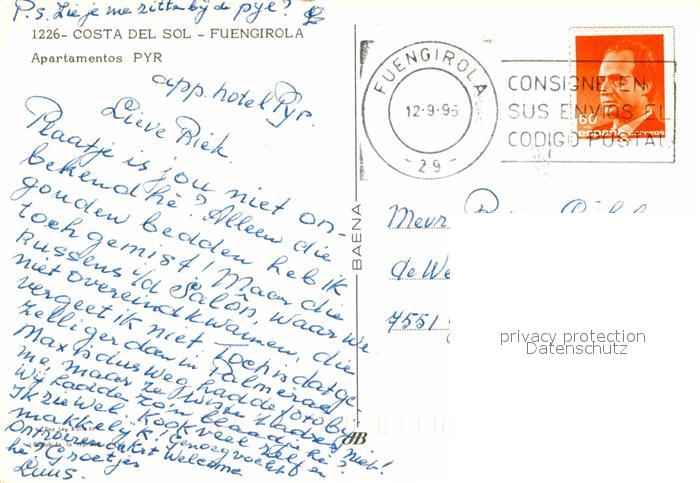 P.s. Zie je me zitten bij de pyr?
1226- COSTA DEL SOL - FUENGIROLA
Apartamentos PYR
app. hotel Pyr.
Lieve Riek.
Plaatje is jou niet on-
bekend hè? Alleen die
gouden bedden heb ik
toch gemist! Maar die
kussens i/d Salôn, waar we
niet overeind kwamen, die
vergeet ik niet. Toch is dat ge-
zelliger dan in Palmeras
Max is dus weg had de foto bij
me, maar ze wist 't adres niet!
Wij hadden zo'n
Ik zie wel. Kook veel zelf en
makkelijk! Genoeg
Welcome
hè? Groetjes
Luus.
FUENGIROLA
12-9-95
- 29 -
CONSIGNE EN
SUS ENVIOS EL
CODIGO POSTAL
60
españa correos
BAENA
Mevr
de We
7551
privacy protection
Datenschutz